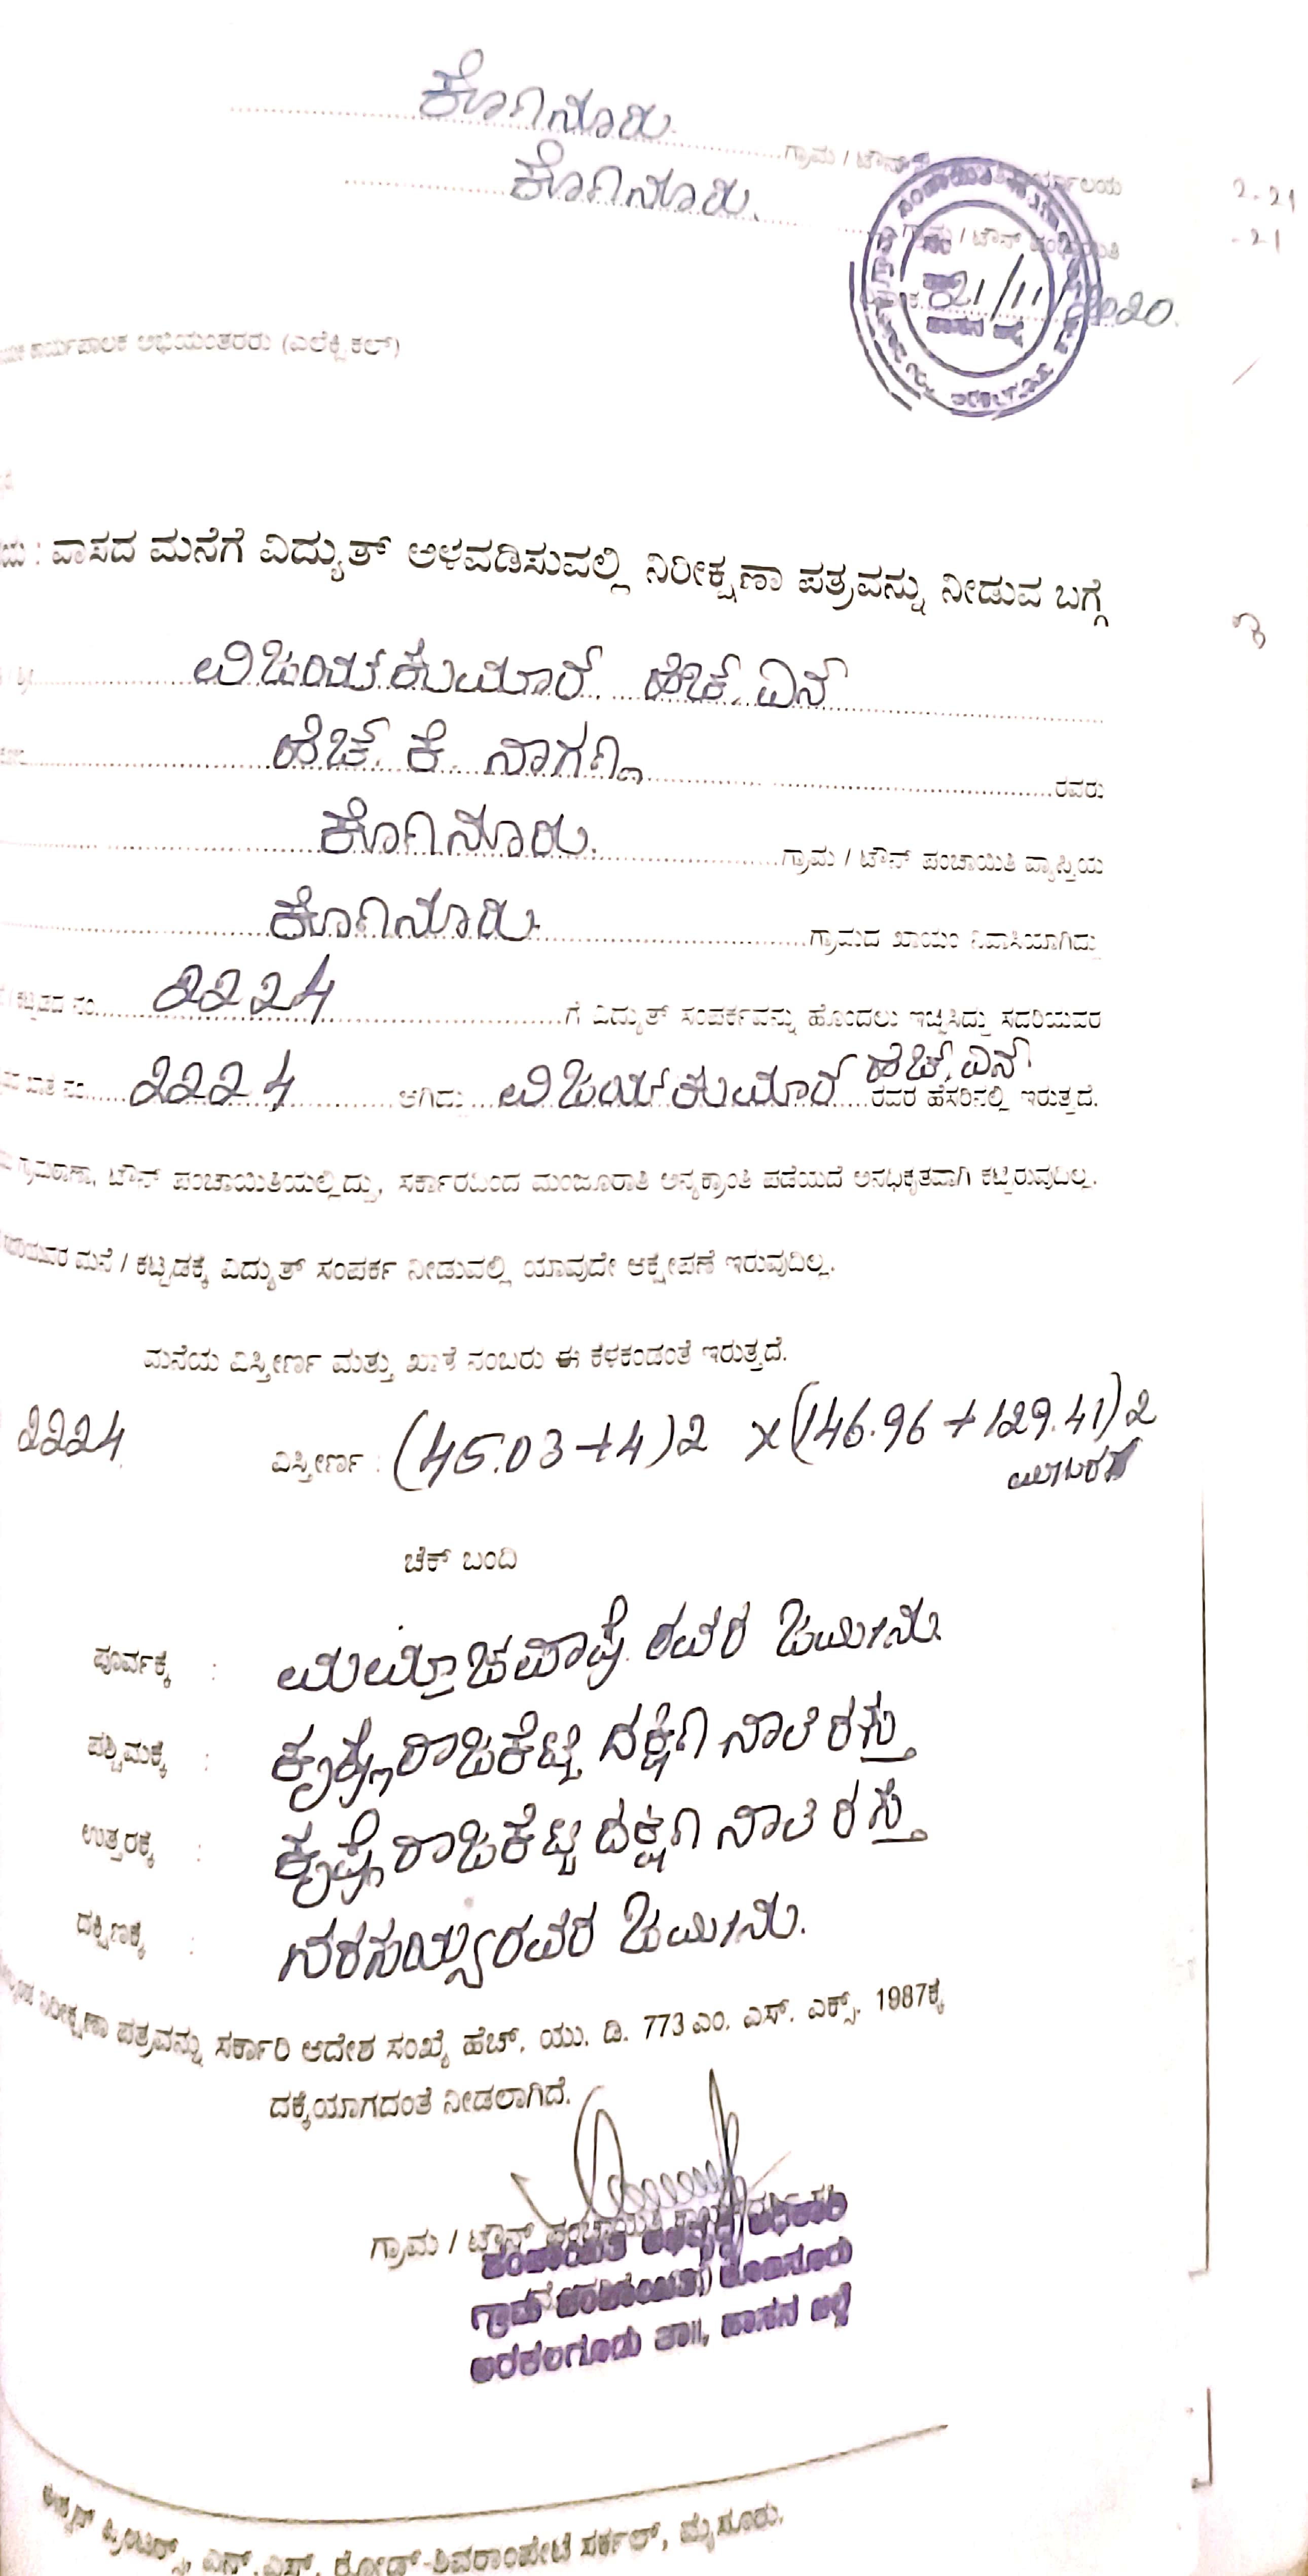 ಕೊಣನೂರು.
ಗ್ರಾಮ / ಟೌನ್
ಕೊಣನೂರು.
2-21
/ ಟೌನ್ ಪಂಚಾಯಿತಿ
-21
21/11/2020.
ಕಾರ್ಯಪಾಲಕ ಅಭಿಯಂತರರು (ಎಲೆಕ್ಟ್ರಿಕಲ್)
: ವಾಸದ ಮನೆಗೆ ವಿದ್ಯುತ್ ಅಳವಡಿಸುವಲ್ಲಿ ನಿರೀಕ್ಷಣಾ ಪತ್ರವನ್ನು ನೀಡುವ ಬಗ್ಗೆ
ವಿಜಯಕುಮಾರ್ ಹೆಚ್.ಎನ್
ಹೆಚ್. ಕೆ. ನಾಗಣ್ಣ ರವರು
ಕೊಣನೂರು. ಗ್ರಾಮ / ಟೌನ್ ಪಂಚಾಯಿತಿ ವ್ಯಾಪ್ತಿಯ
ಕೊಣನೂರು. ಗ್ರಾಮದ ಖಾಯಂ ನಿವಾಸಿಯಾಗಿದ್ದು
ಕಟ್ಟಡದ ನಂ. 2224 ಗೆ ವಿದ್ಯುತ್ ಸಂಪರ್ಕವನ್ನು ಹೊಂದಲು ಇಚ್ಛಿಸಿದ್ದು ಸದರಿಯವರ
ಖಾತೆ ನಂ. 2224 ಆಗಿದ್ದು ವಿಜಯಕುಮಾರ್ ಹೆಚ್.ಎನ್. ರವರ ಹೆಸರಿನಲ್ಲಿ ಇರುತ್ತದೆ.
ಗ್ರಾಮಠಾಣಾ, ಟೌನ್ ಪಂಚಾಯಿತಿಯಲ್ಲಿದ್ದು, ಸರ್ಕಾರದಿಂದ ಮಂಜೂರಾತಿ ಅನ್ಯಕ್ರಾಂತಿ ಪಡೆಯದೆ ಅನಧಿಕೃತವಾಗಿ ಕಟ್ಟಿರುವುದಿಲ್ಲ.
ಸದರಿಯವರ ಮನೆ / ಕಟ್ಟಡಕ್ಕೆ ವಿದ್ಯುತ್ ಸಂಪರ್ಕ ನೀಡುವಲ್ಲಿ ಯಾವುದೇ ಆಕ್ಷೇಪಣೆ ಇರುವುದಿಲ್ಲ.
ಮನೆಯ ವಿಸ್ತೀರ್ಣ ಮತ್ತು ಖಾತೆ ನಂಬರು ಈ ಕೆಳಕಂಡಂತೆ ಇರುತ್ತದೆ.
2224 ವಿಸ್ತೀರ್ಣ : (45.03+4)2 x (146.96+129.41)2
ಚೆಕ್ ಬಂದಿ
ಪೂರ್ವಕ್ಕೆ : ರವರ ಜಮೀನು
ಪಶ್ಚಿಮಕ್ಕೆ : ಕೃಷ್ಣರಾಜಕಟ್ಟೆ ದಕ್ಷಿಣ ನಾಲೆ ರಸ್ತೆ
ಉತ್ತರಕ್ಕೆ : ಕೃಷ್ಣರಾಜಕಟ್ಟೆ ದಕ್ಷಿಣ ನಾಲೆ ರಸ್ತೆ
ದಕ್ಷಿಣಕ್ಕೆ : ನರಸಯ್ಯರವರ ಜಮೀನು.
ನಿರೀಕ್ಷಣಾ ಪತ್ರವನ್ನು ಸರ್ಕಾರಿ ಆದೇಶ ಸಂಖ್ಯೆ ಹೆಚ್. ಯು. ಡಿ. 773 ಎಂ. ಎಸ್. ಎಕ್ಸ್. 1987ಕ್ಕೆ
ದಕ್ಕೆಯಾಗದಂತೆ ನೀಡಲಾಗಿದೆ.
ಗ್ರಾಮ / ಟೌನ್ ಪಂಚಾಯಿತಿ
ಪಂಚಾಯಿತಿ ಅಭಿವೃದ್ಧಿ ಅಧಿಕಾರಿ
ಗ್ರಾಮ ಪಂಚಾಯಿತಿ, ಕೊಣನೂರು
ಅರಕಲಗೂಡು ತಾ||, ಹಾಸನ ಜಿಲ್ಲೆ
ಪ್ರಿಂಟರ್ಸ್, ಎನ್.ಎಸ್. ರೋಡ್-ಶಿವರಾಂಪೇಟೆ ಸರ್ಕಲ್, ಮೈಸೂರು.